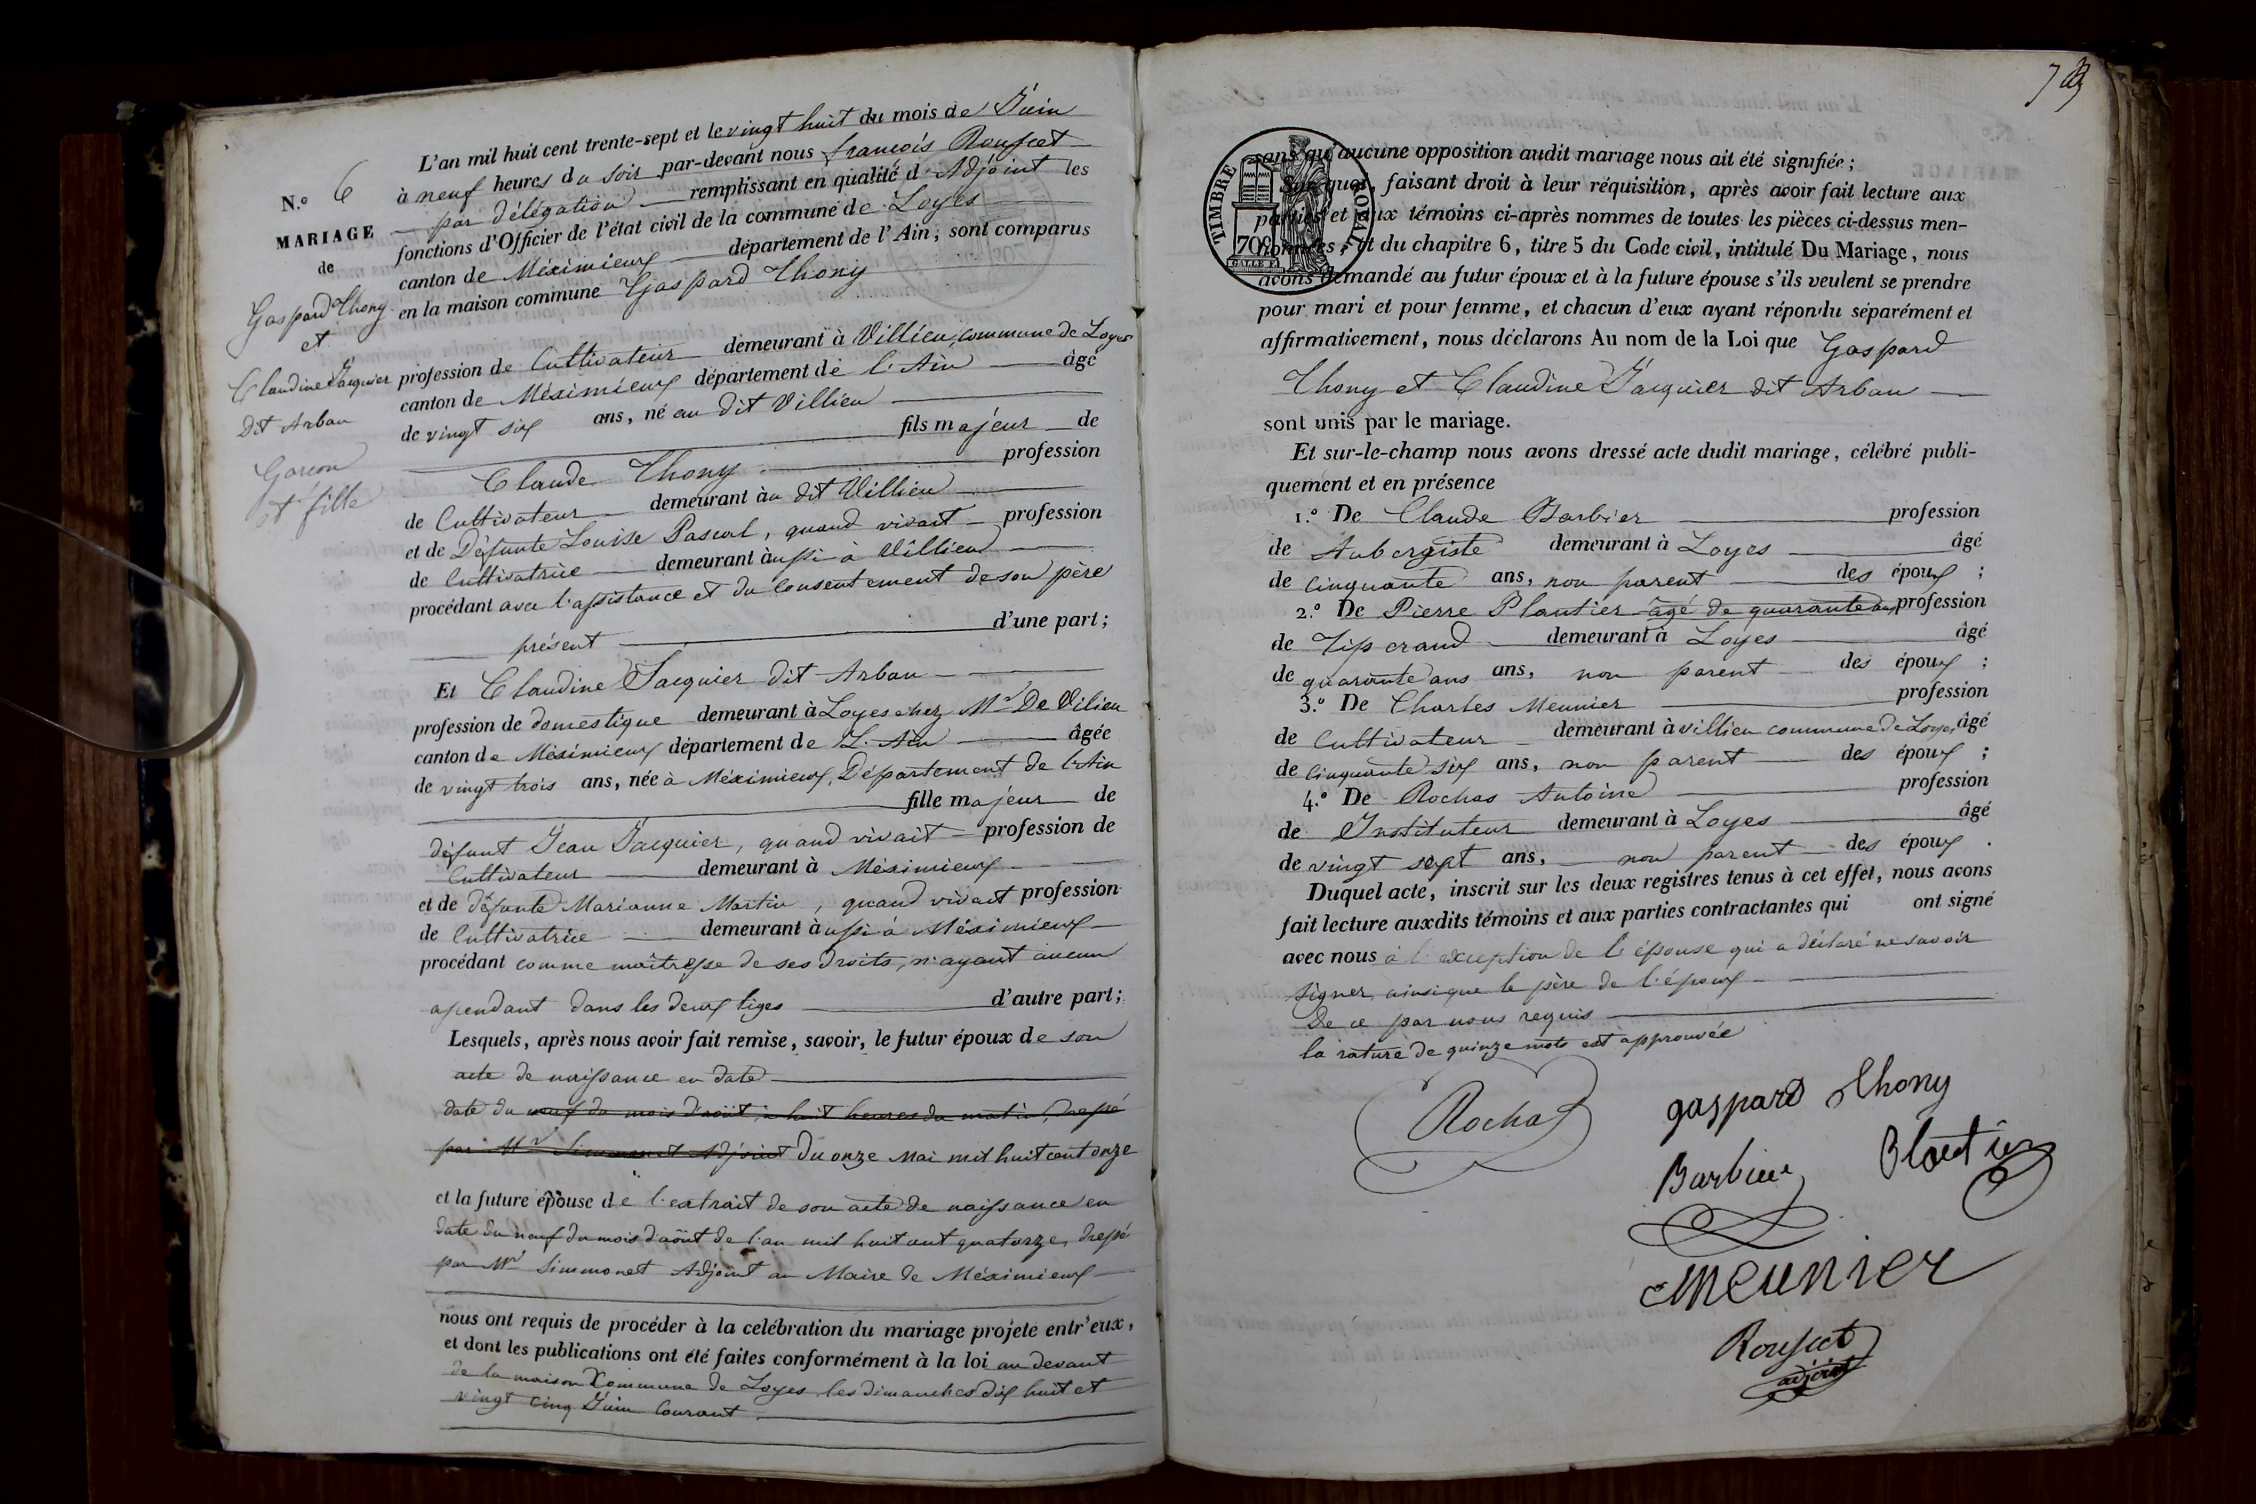 N.º 6
MARIAGE
de
Gaspard Thony
et
Claudine Jacquier
dit Arban
Garçon
et fille
L'an mil huit cent trente-sept et le vingt huit du mois de Juin
à neuf heures du soir par-devant nous francois Rousset
par délégation remplissant en qualité d'Adjoint les
fonctions d'Officier de l'état civil de la commune de Loyes
canton de Méximieux département de l'Ain; sont comparus
en la maison commune Gaspard Thony
profession de Cultivateur demeurant à Villieu, commune de Loyes
canton de Méximieux département de l'Ain âgé
de vingt six ans, né au dit Villieu
fils majeur de
Claude Thony profession
de Cultivateur demeurant àu dit Villieu
et de Défunte Louise Pascal, quand vivait profession
de Cultivatrice demeurant àussi à Villieu
procédant avec l'assistance et du consentement de son père
présent d'une part;
Et Claudine Jacquier dit Arban
profession de domestique demeurant à Loyes chez Mr De Vilieu
canton de Méximieux département de L'Ain âgée
de vingt trois ans, née à Méximieux, Département de l'Ain
fille majeur de
défunt Jean Jacquier, quand vivait profession de
Cultivateur demeurant à Méximieux
et de défunte Marianne Martin, quand vivait profession
de Cultivatrice demeurant àussi à Méximieux
procédant comme maîtresse de ses droits, n'ayant aucun
apendant dans les deux tiges d'autre part;
Lesquels, après nous avoir fait remise, savoir, le futur époux de son
acte de naissance en date
date du neuf du mois d'août, à huit heures du matin, dressé
par Mr Simmonet Adjoint du onze Mai mil huit cent onze
et la future épouse de l'extrait de son acte de naissance en
date du neuf du mois d'août de l'an mil huit cent quatorze, dressé
par Mr Simmonet Adjoint au Maire de Méximieux
nous ont requis de procéder à la celébration du mariage projeté entr'eux,
et dont les publications ont été faites conformément à la loi au devant
de la maison Commune de Loyes, les dimanches dix huit et
vingt cinq Juin Courant
TIMBRE ROYAL
70c
sans qu'aucune opposition audit mariage nous ait été signifiée;
Sur quoi, faisant droit à leur réquisition, après avoir fait lecture aux
parties et aux témoins ci-après nommes de toutes les pièces ci-dessus men-
tionnées, et du chapitre 6, titre 5 du Code civil, intitulé Du Mariage, nous
avons demandé au futur époux et à la future épouse s'ils veulent se prendre
pour mari et pour femme, et chacun d'eux ayant répondu séparément et
affirmativement, nous déclarons Au nom de la Loi que Gaspard
Thony et Claudine Jacquier dit Arban
sont unis par le mariage.
Et sur-le-champ nous avons dressé acte dudit mariage, célébré publi-
quement et en présence
1.º De Claude Barbier profession
de Aubergiste demeurant à Loyes âgé
de cinquante ans, non parent des époux;
2.º De Pierre Plantier âgé de quarante ans, profession
de Tisserand demeurant à Loyes âgé
de quarante ans ans, non parent des époux;
3.º De Charles Meunier profession
de Cultivateur demeurant à villieu commune de Loyes âgé
de cinquante six ans, non parent des époux;
4.º De Rochas Antoine profession
de Instituteur demeurant à Loyes âgé
de vingt sept ans, non parent des époux.
Duquel acte, inscrit sur les deux registres tenus à cet effet, nous avons
fait lecture auxdits témoins et aux parties contractantes qui ont signé
avec nous à l'exception de l'épouse qui a déclaré ne savoir
signer, ainsi que le père de l'époux
De ce par nous requis
la rature de quinze mots est approuvée
Rochas
gaspard Thony
Barbier
Plantier
Meunier
Rousset
adjoint